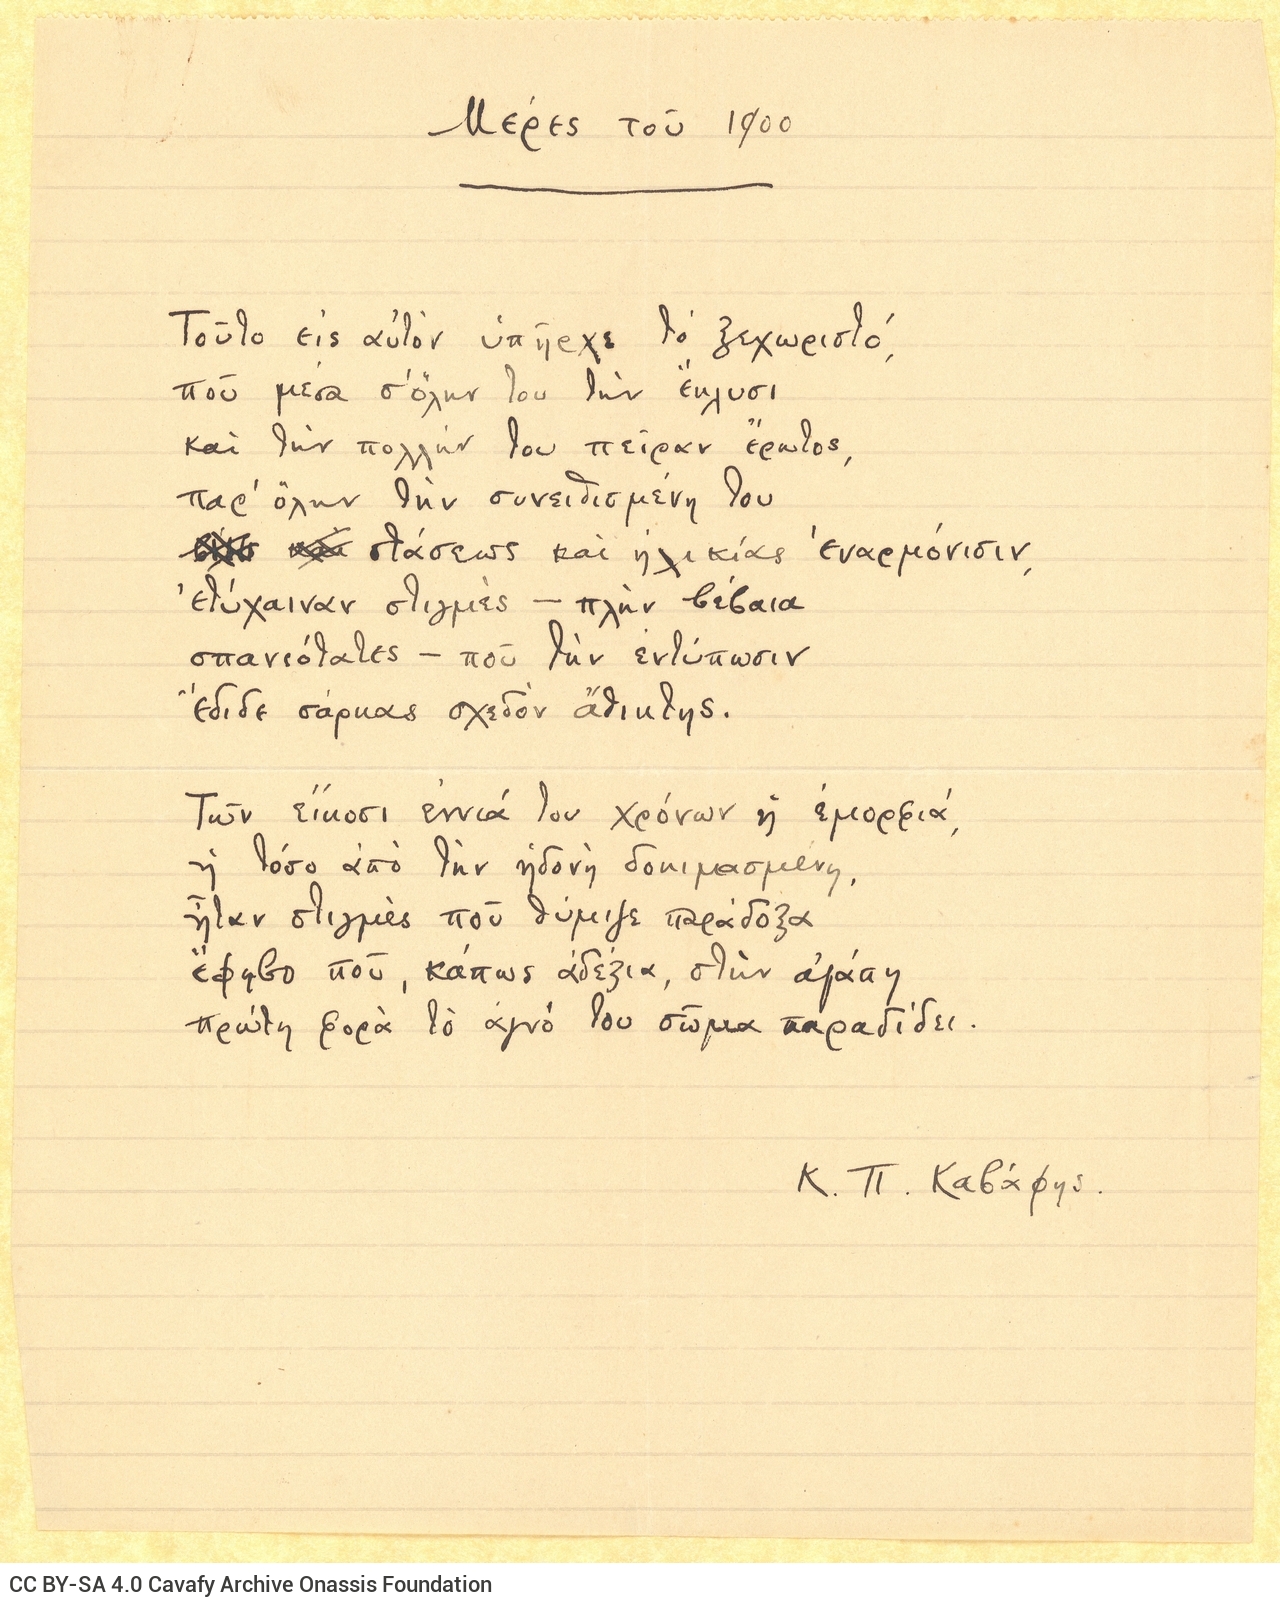 Μέρες τοῦ 1900
Τοῦτο εἰς αὐτὸν ὑπῆρχε τὸ ξεχωριστό,
ποῦ μέσα σ' ὅλην του τὴν ἔκλυσι
καὶ τὴν πολλήν του πεῖραν ἔρωτος,
παρ' ὅλην τὴν συνειθισμένη του
στάσεως καὶ ἡλικίας ἐναρμόνισιν,
ἐτύχαιναν στιγμὲς — πλὴν βέβαια
σπανιότατες — ποῦ τὴν ἐντύπωσιν
ἔδιδε σάρκας σχεδὸν ἄθικτης.
Τῶν εἴκοσι ἐννιά του χρόνων ἡ ἐμορφιά,
ἡ τόσο ἀπὸ τὴν ἡδονὴ δοκιμασμένη,
ἦταν στιγμὲς ποῦ θύμιζε παράδοξα
ἔφηβο ποῦ, κάπως ἀδέξια, στὴν ἀγάπη
πρώτη φορὰ τὸ ἁγνό του σῶμα παραδίδει.
Κ. Π. Καβάφης.
CC BY-SA 4.0 Cavafy Archive Onassis Foundation